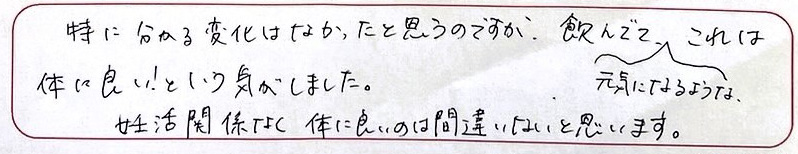 特に分かる変化はなかったと思うのですが、飲んでて、これは
元気になるような、
体に良い!という気がしました。
妊活関係なく体に良いのは間違いないと思います。